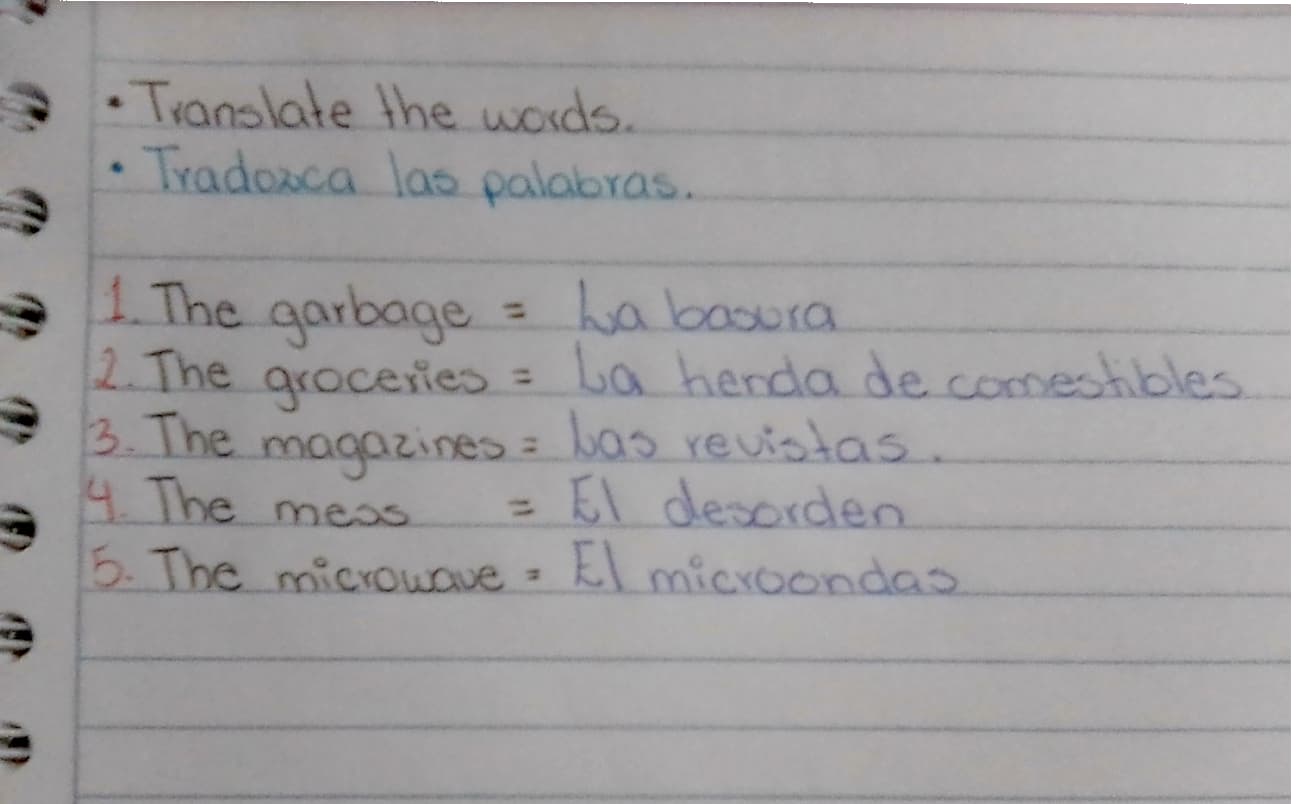 • Translate the words.
• Traduzca las palabras.
1. The garbage = La basura
2. The groceries = La tienda de comestibles
3. The magazines = Las revistas.
4. The mess = El desorden
5. The microwave = El microondas